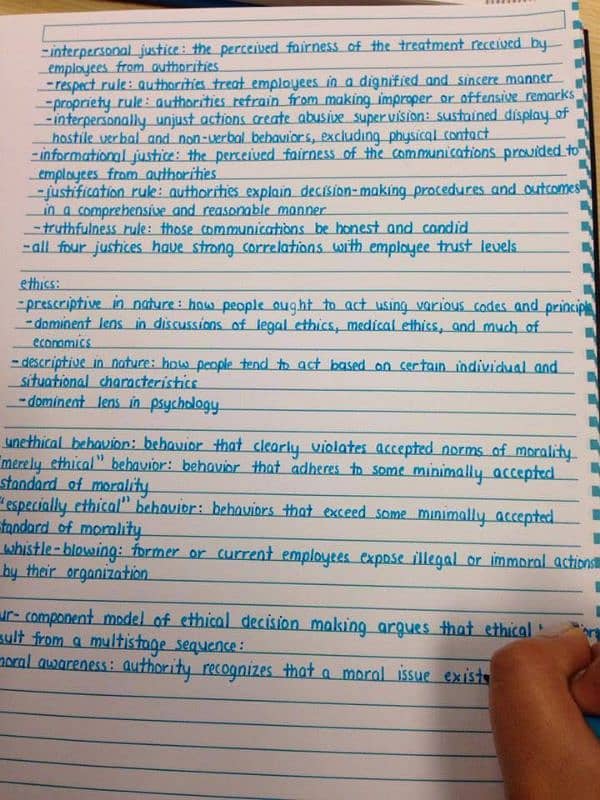 -interpersonal justice: the perceived fairness of the treatment received by
employees from authorities
-respect rule: authorities treat employees in a dignified and sincere manner
-propriety rule: authorities refrain from making improper or offensive remarks
-interpersonally unjust actions create abusive supervision: sustained display of
hostile verbal and non-verbal behaviors, excluding physical contact
-informational justice: the perceived fairness of the communications provided to
employees from authorities
-justification rule: authorities explain decision-making procedures and outcomes
in a comprehensive and reasonable manner
-truthfulness rule: those communications be honest and candid
-all four justices have strong correlations with employee trust levels
ethics:
-prescriptive in nature: how people ought to act using various codes and
-dominent lens in discussions of legal ethics, medical ethics, and much of
economics
-descriptive in nature: how people tend to act based on certain individual and
situational characteristics
-dominent lens in psychology
unethical behavior: behavior that clearly violates accepted norms of morality
"merely ethical" behavior: behavior that adheres to some minimally accepted
standard of morality
"especially ethical" behavior: behaviors that exceed some minimally accepted
standard of morality
whistle-blowing: former or current employees expose illegal or immoral actions
by their organization
component model of ethical decision making argues that ethical
from a multistage sequence:
moral awareness: authority recognizes that a moral issue